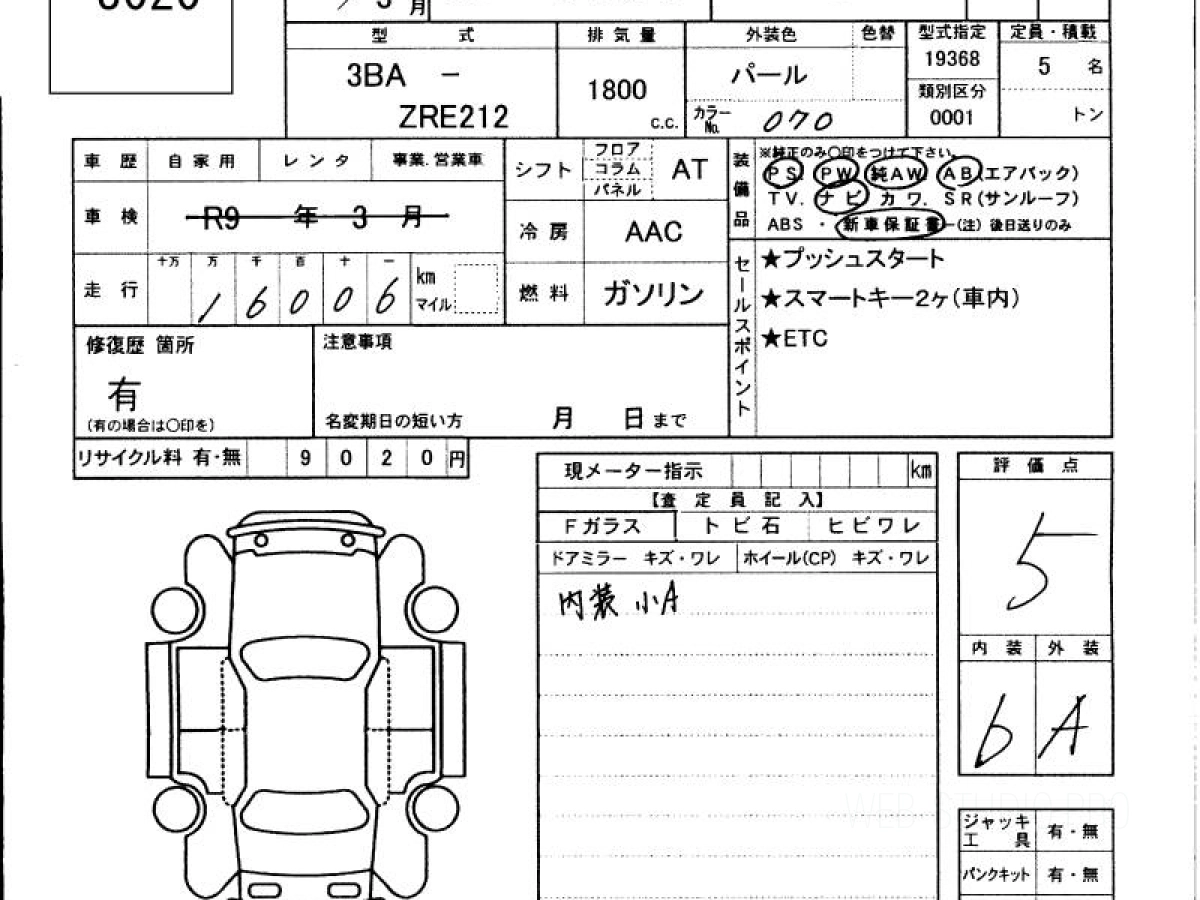 月
型式 排気量 外装色 色替 型式指定 定員・積載
3BA － 1800 パール 19368 5 名
類別区分
ZRE212 c.c. カラーNo. 070 0001 トン
車歴 自家用 レンタ 事業.営業車 シフト フロア コラム パネル AT
装備品 ※純正のみ〇印をつけて下さい。
PS. PW. 純AW. AB.(エアバック)
TV. ナビ カワ. SR(サンルーフ)
ABS ・ 新車保証書 (注) 後日送りのみ
車検 R9 年 3 月 冷房 AAC
走行 十万 万 千 百 十 一
1 6 0 0 6 km
マイル
燃料 ガソリン
セールスポイント
★プッシュスタート
★スマートキー2ヶ(車内)
★ETC
修復歴 箇所 注意事項
有
(有の場合は〇印を) 名変期日の短い方 月 日 まで
リサイクル料 有・無 9 0 2 0 円
現メーター指示 km 評価点
【査定員記入】
Fガラス トビ石 ヒビワレ
ドアミラー キズ・ワレ ホイール(CP) キズ・ワレ
5
内装 小A
内装 外装
b A
WEB STUDIO PRO
ジャッキ工具 有・無
パンクキット 有・無